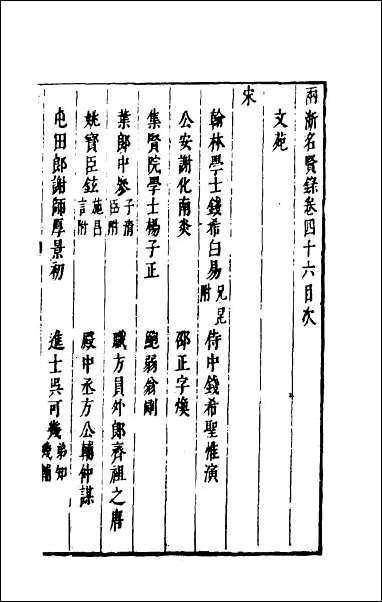 兩浙名賢錄卷四十六目次
文苑
宋
翰林學士錢希白易兄昆附 侍中錢希聖惟演
公安謝化南炎 邵正字煥
集賢院學士楊子正 鮑弱翁剛
葉郎中參子清臣附 職方員外郎齊祖之唐
姚寳臣鉉施昌言附 殿中丞方公輔仲謀
屯田郎謝師厚景初 進士吳可幾弟知幾輔